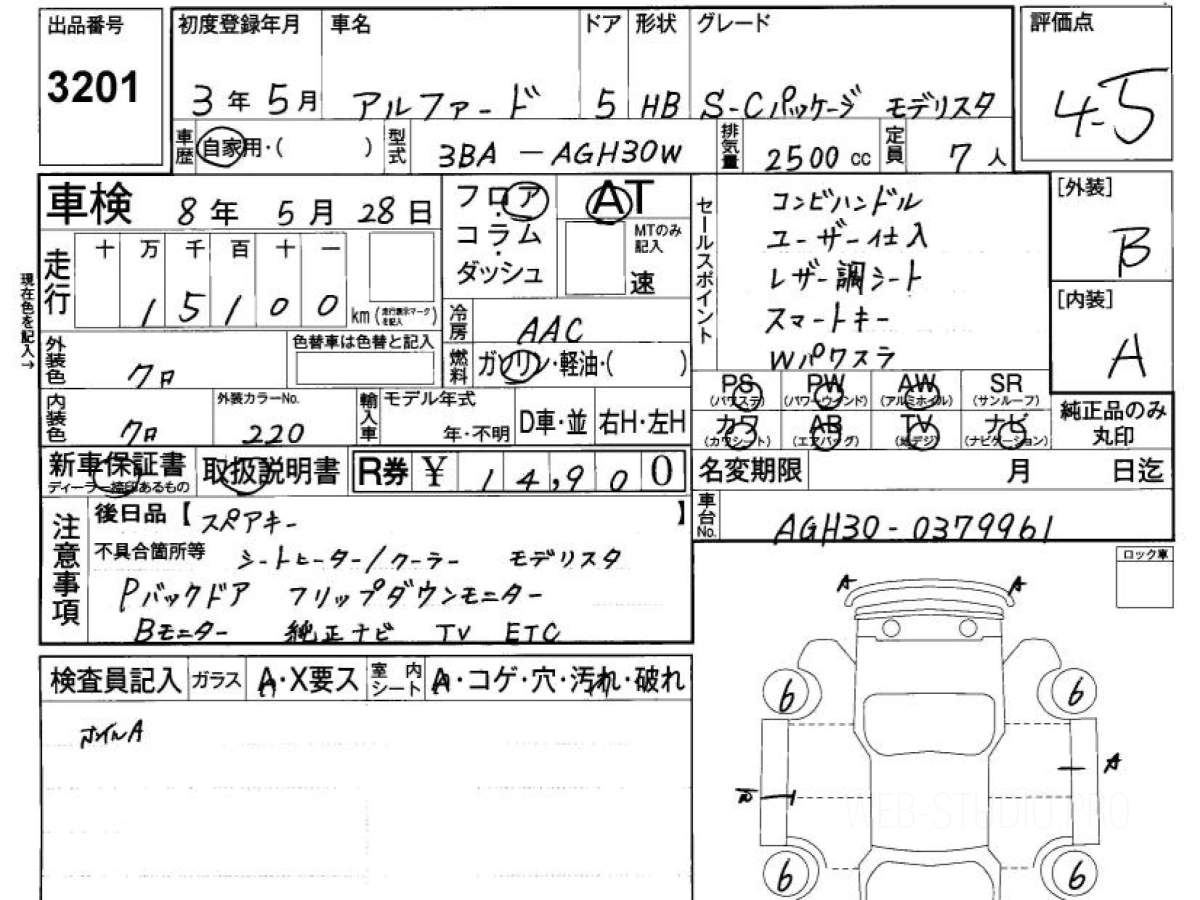 出品番号 初度登録年月 車名 ドア 形状 グレード 評価点
3201 3年 5月 アルファード 5 HB S-Cパッケージ モデリスタ 4.5
車歴 自家用・( ) 型式 3BA-AGH30W 排気量 2500 cc 定員 7人
車検 8年 5月 28日 フロア AT セールスポイント コンビハンドル [外装]
コラム MTのみ記入 ユーザー仕入 B
走行 十 万 千 百 十 一 ダッシュ 速 レザー調シート [内装]
1 5 1 0 0 km (走行表示マークを記入) 冷房 AAC スマートキー A
現在色を記入→
外装色 クロ 色替車は色替と記入 燃料 ガソリン・軽油・( ) Wパワスラ
PS (パワステ) PW (パワーウインド) AW (アルミホイル) SR (サンルーフ) 純正品のみ丸印
内装色 クロ 外装カラーNo. 220 輸入車 モデル年式 年・不明 D車・並 右H・左H カワ (カワシート) AB (エアバッグ) TV (地デジ) ナビ (ナビゲーション)
新車保証書 ディーラー捺印あるもの 取扱説明書 R券 ¥ 14,900 名変期限 月 日迄
注意事項 後日品【スペアキー 】 車台No. AGH30-0379961
不具合箇所等 シートヒーター/クーラー モデリスタ ロック車
Pバックドア フリップダウンモニター
Bモニター 純正ナビ TV ETC
A A
検査員記入 ガラス A・X要ス 室内シート A・コゲ・穴・汚れ・破れ
6 6
ホイルA
A
WEB-STUDIO.PRO
6 6